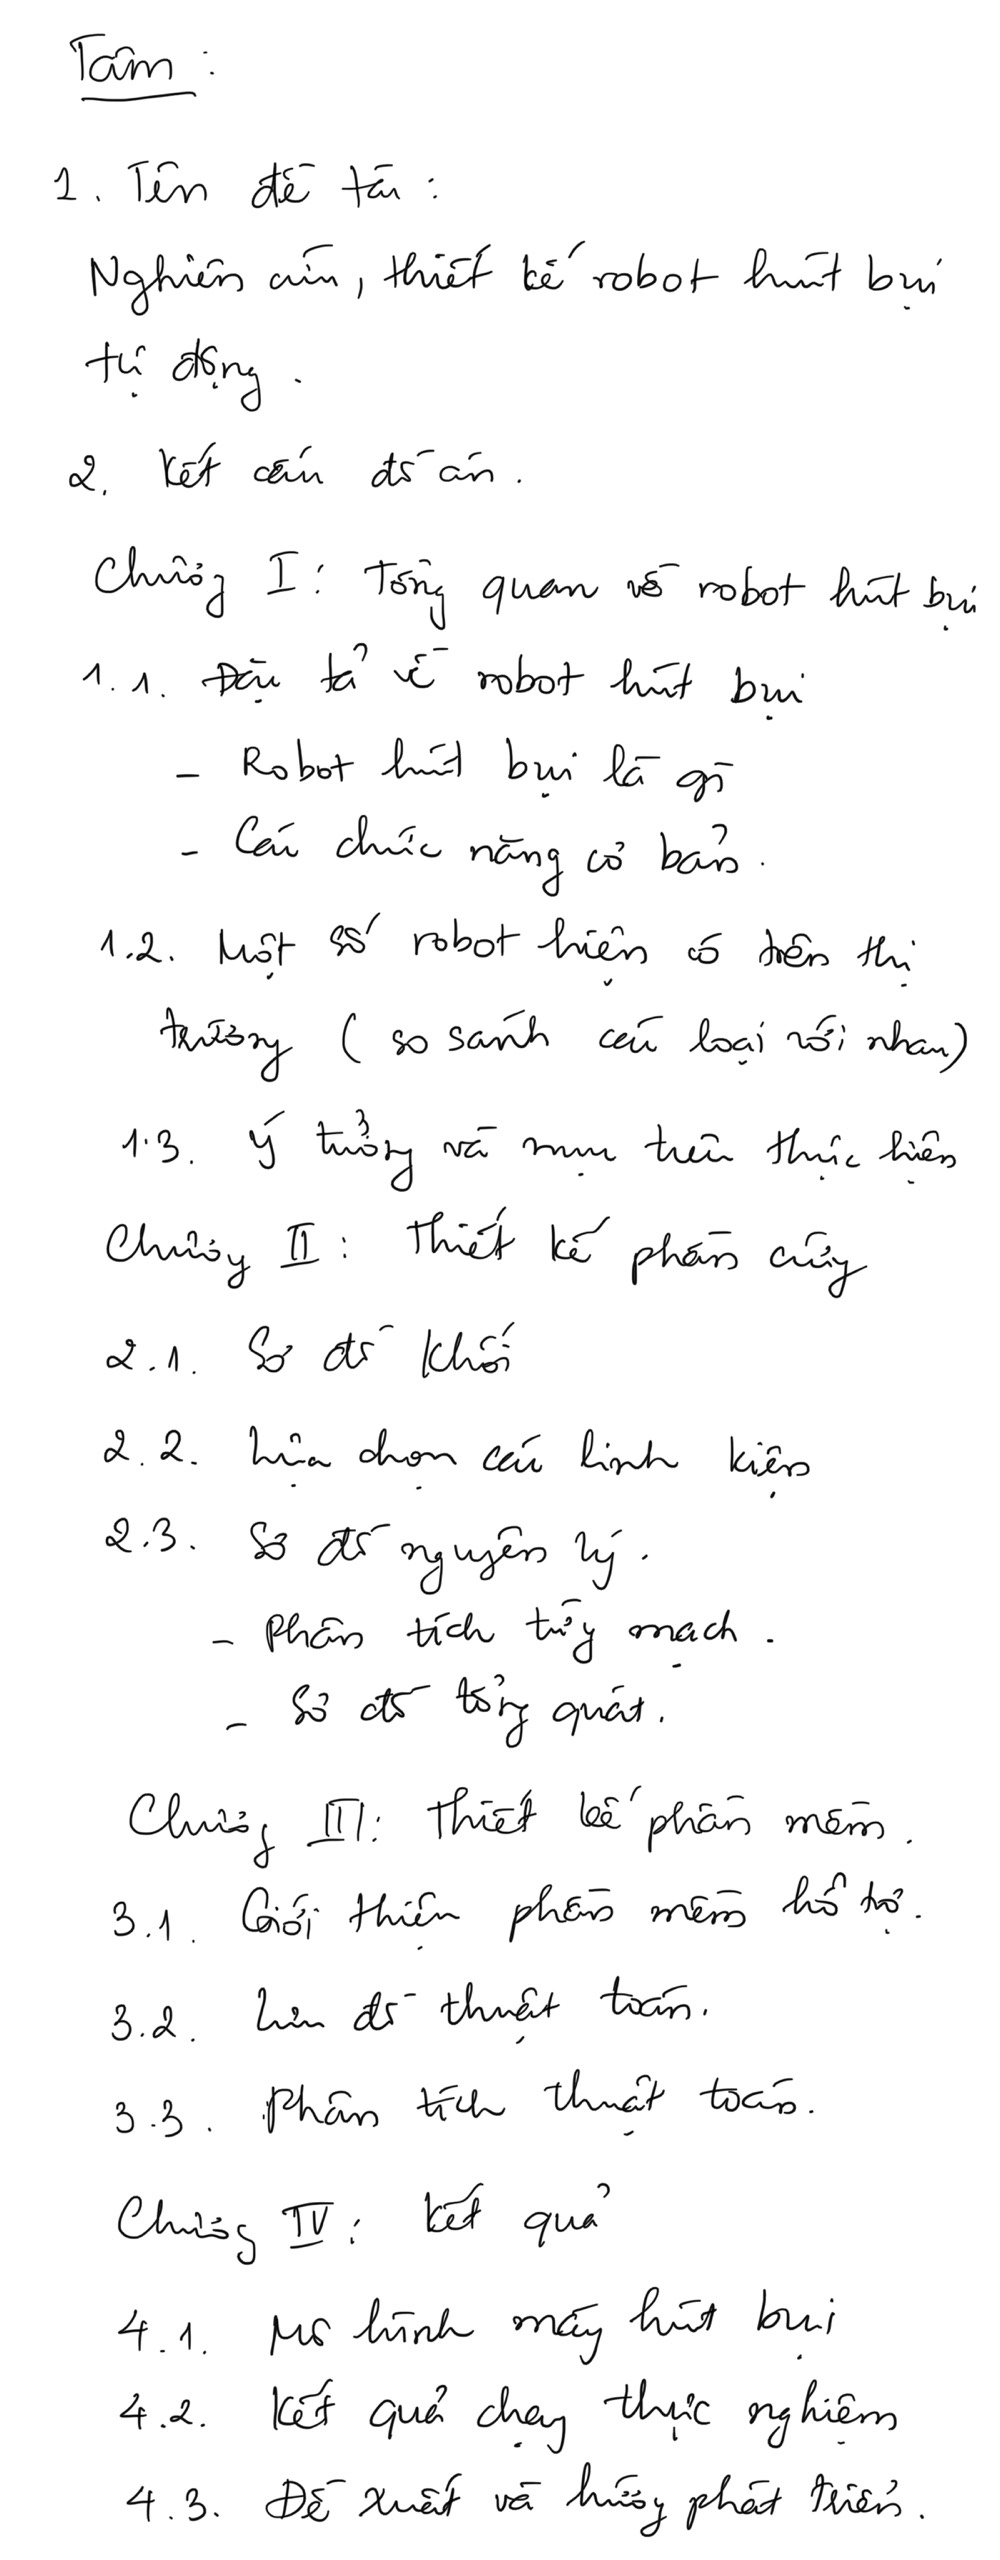 Tâm :
1. Tên đề tài :
Nghiên cứu, thiết kế robot hút bụi
tự động .
2. Kết cấu đồ án .
Chương I : Tổng quan về robot hút bụi
1.1. Đặc tả về robot hút bụi
- Robot hút bụi là gì
- Các chức năng cơ bản .
1.2. Một số robot hiện có trên thị
trường ( so sánh các loại với nhau )
1.3. Ý tưởng và mục tiêu thực hiện
Chương II : Thiết kế phần cứng
2.1. Sơ đồ khối
2.2. Lựa chọn các linh kiện
2.3. Sơ đồ nguyên lý .
- Phân tích từng mạch .
- Sơ đồ tổng quát .
Chương III : Thiết kế phần mềm .
3.1. Giới thiệu phần mềm hỗ trợ .
3.2. Lưu đồ thuật toán .
3.3. Phân tích thuật toán .
Chương IV : Kết quả
4.1. Mô hình máy hút bụi
4.2. Kết quả chạy thực nghiệm
4.3. Đề xuất và hướng phát triển .